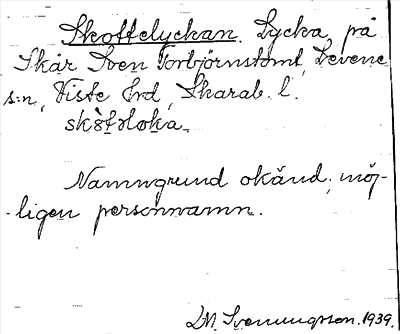 Skottelyckan. Lycka på
Skår Sven Torbjörnstomt, Levene
s:n, Viste hrd, Skarab. l.
Namngrund okänd, möj-
-ligen personnamn.
D.M. Svenungsson. 1939.